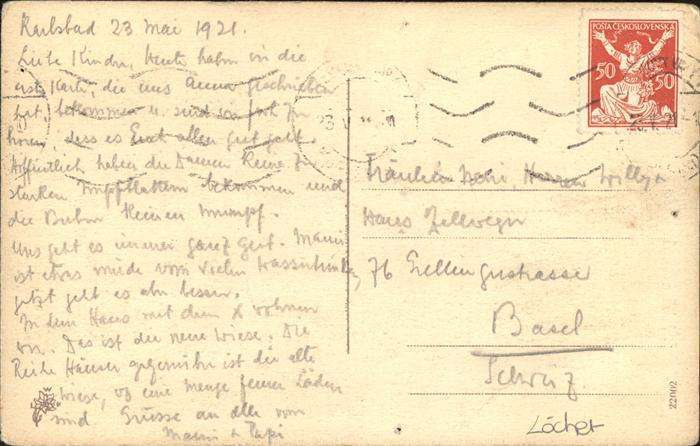 Karlsbad 23 Mai 1921.
Liebe Kinder, Heute haben wir die
erste Karte, die uns Anna geschrieben
hat bekommen u. sind so froh zu
hören, dass es Euch allen gut geht.
Hoffentlich haben die Damen keine zu
starken Impfblattern bekommen und
die Buben keinen Mumpf.
Uns geht es immer ganz gut. Mami
ist etwas müde vom vielen Wassertrinken,
jetzt geht es aber besser.
In dem Haus mit dem X wohnen
wir. Das ist die neue Wiese. Die
Reihe Häuser gegenüber ist die alte
Wiese, wo eine Menge feiner Läden
sind. Grüsse an alle von
Mami & Papi
POŠTA ČESKOSLOVENSKÁ
50 50
Fräulein Herren Willy &
Hans Zellweger
76 Gellertstrasse
Basel
Schweiz
22002
Löcher